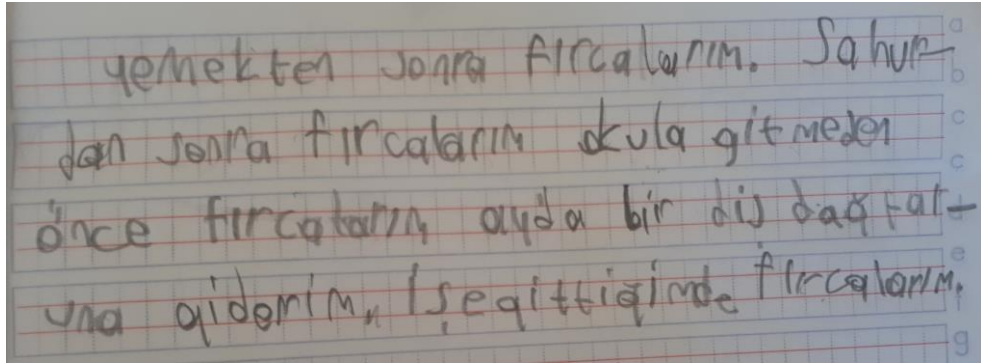 yemekten sonra fırcalarım. Sahur-
dan sonra fırcalarım okula gitmeden
önce fırcalarım ayda bir diş
una giderim, İşegittiğimde fırcalarım.